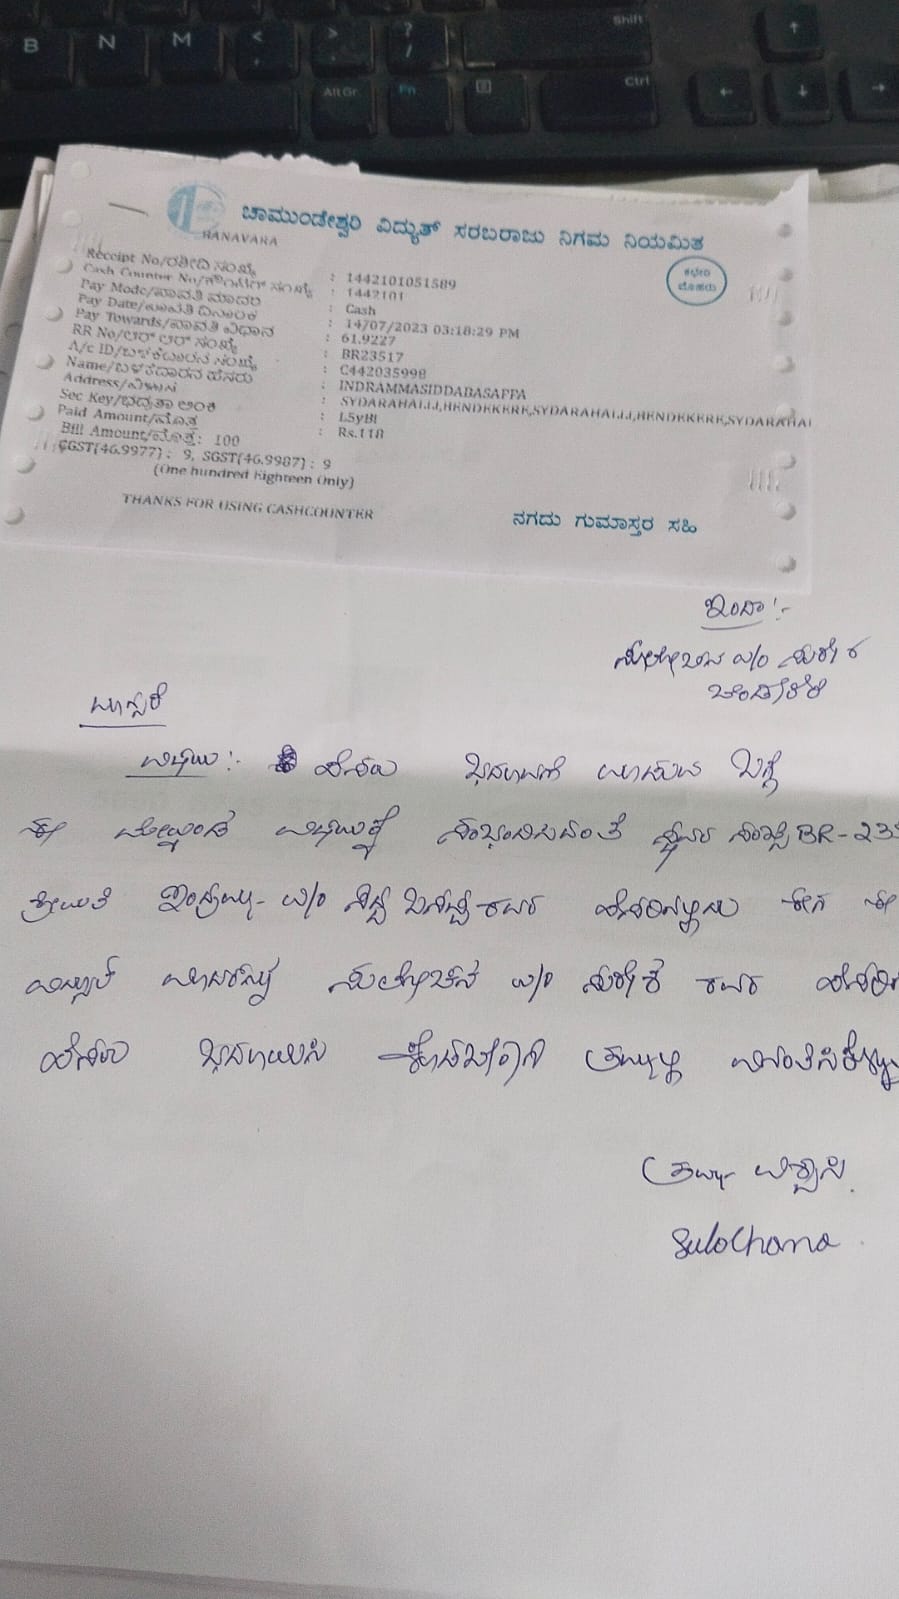 B N M < , > . ? / Shift
Alt Gr Fn Ctrl
ಚಾಮುಂಡೇಶ್ವರಿ ವಿದ್ಯುತ್ ಸರಬರಾಜು ನಿಗಮ ನಿಯಮಿತ
BANAVARA
ಕಛೇರಿ
ಮೊಹರು
Receipt No/ರಶೀದಿ ಸಂಖ್ಯೆ : 1442101051589
Cash Counter No/ಕೌಂಟರ್ ಸಂಖ್ಯೆ : 1442101
Pay Mode/ಪಾವತಿ ಮಾದರಿ : Cash
Pay Date/ಪಾವತಿ ದಿನಾಂಕ : 14/07/2023 03:18:29 PM
Pay Towards/ಪಾವತಿ ವಿಧಾನ : 61.9227
RR No/ಆರ್ ಆರ್ ಸಂಖ್ಯೆ : BR23517
A/c ID/ಬಳಕೆದಾರನ ಸಂಖ್ಯೆ : C442035998
Name/ಬಳಕೆದಾರನ ಹೆಸರು : INDRAMMASIDDABASAPPA
Address/ವಿಳಾಸ : SYDARAHALLI,HENDEKERE,SYDARAHALLI,HENDEKERE,SYDARAHAL
Sec Key/ಭದ್ರತಾ ಅಂಕಿ : L5yBl
Paid Amount/ಮೊತ್ತ : Rs.118
Bill Amount/ಮೊತ್ತ: 100
CGST(46.9977) : 9, SGST(46.9987) : 9
(One hundred Eighteen Only)
THANKS FOR USING CASHCOUNTER
ನಗದು ಗುಮಾಸ್ತರ ಸಹಿ
ಇಂದಾ:-
ಸುಲೋಚನ W/o ಸುರೇಶ
ಮಾನ್ಯರೆ
ವಿಷಯ:- ಹೆಸರು ಬದಲಾವಣೆ ಮಾಡುವ ಬಗ್ಗೆ
ಈ ಮೇಲ್ಕಂಡ ವಿಷಯಕ್ಕೆ ಸಂಭಂದಿಸಿದಂತೆ ಸ್ಥಾವರ ಸಂಖ್ಯೆ BR-235
ಶ್ರೀಮತಿ ಇಂದ್ರಮ್ಮ W/o ಸಿದ್ದಬಸಪ್ಪ ರವರ ಹೆಸರಿನಲ್ಲಿದ್ದು ಈಗ ಈ
ಸುಲೋಚನ W/o ಸುರೇಶ ರವರ ಹೆಸರಿಗೆ
ಹೆಸರು ಬದಲಾಯಿಸಿ ಕೊಡಬೇಕಾಗಿ ತಮ್ಮಲ್ಲಿ ವಿನಂತಿಸಿಕೊಳ್ಳು
ತಮ್ಮ ವಿಶ್ವಾಸಿ.
Sulochana